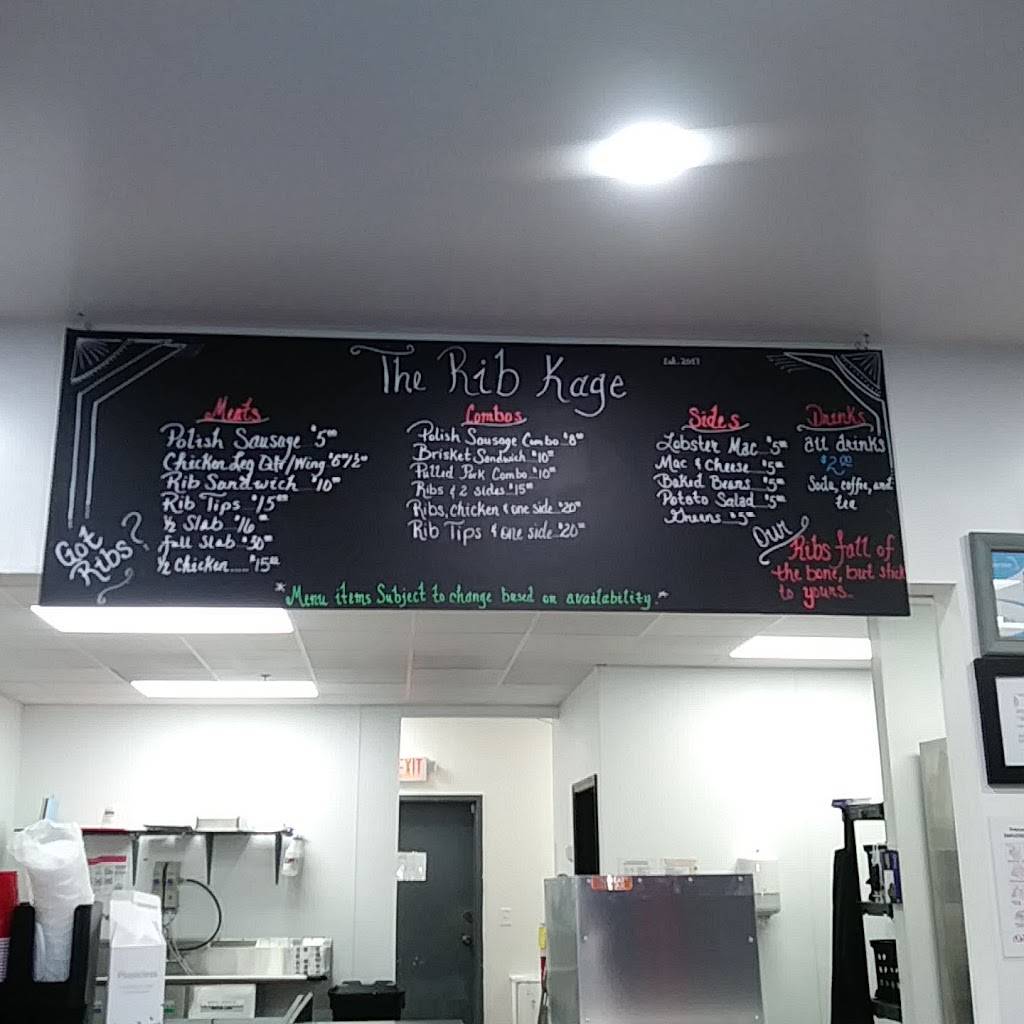 The Rib Kage
Est. 2017
Meats
Polish Sausage $5⁰⁰
Rib Sandwich $10⁰⁰
Rib Tips $15⁰⁰
½ Slab $16⁰⁰
full Slab $30⁰⁰
½ Chicken...... $15⁰⁰
Combos
Polish Sausage Combo $8⁰⁰
Brisket Sandwich $10⁰⁰
Pulled Pork Combo $10⁰⁰
Ribs & 2 sides $15⁰⁰
Ribs, chicken & one side $20⁰⁰
Rib Tips & one side $20⁰⁰
Sides
Lobster Mac $5⁰⁰
Mac & Cheese $5⁰⁰
Baked Beans $5⁰⁰
Potato Salad $5⁰⁰
Greens $5⁰⁰
Drinks
all drinks
$2⁰⁰
Soda, coffee, and
tea
Got
Ribs?
Our
Ribs fall of
the bone, but stick
to yours...
*Menu items Subject to change based on availability.*
EXIT